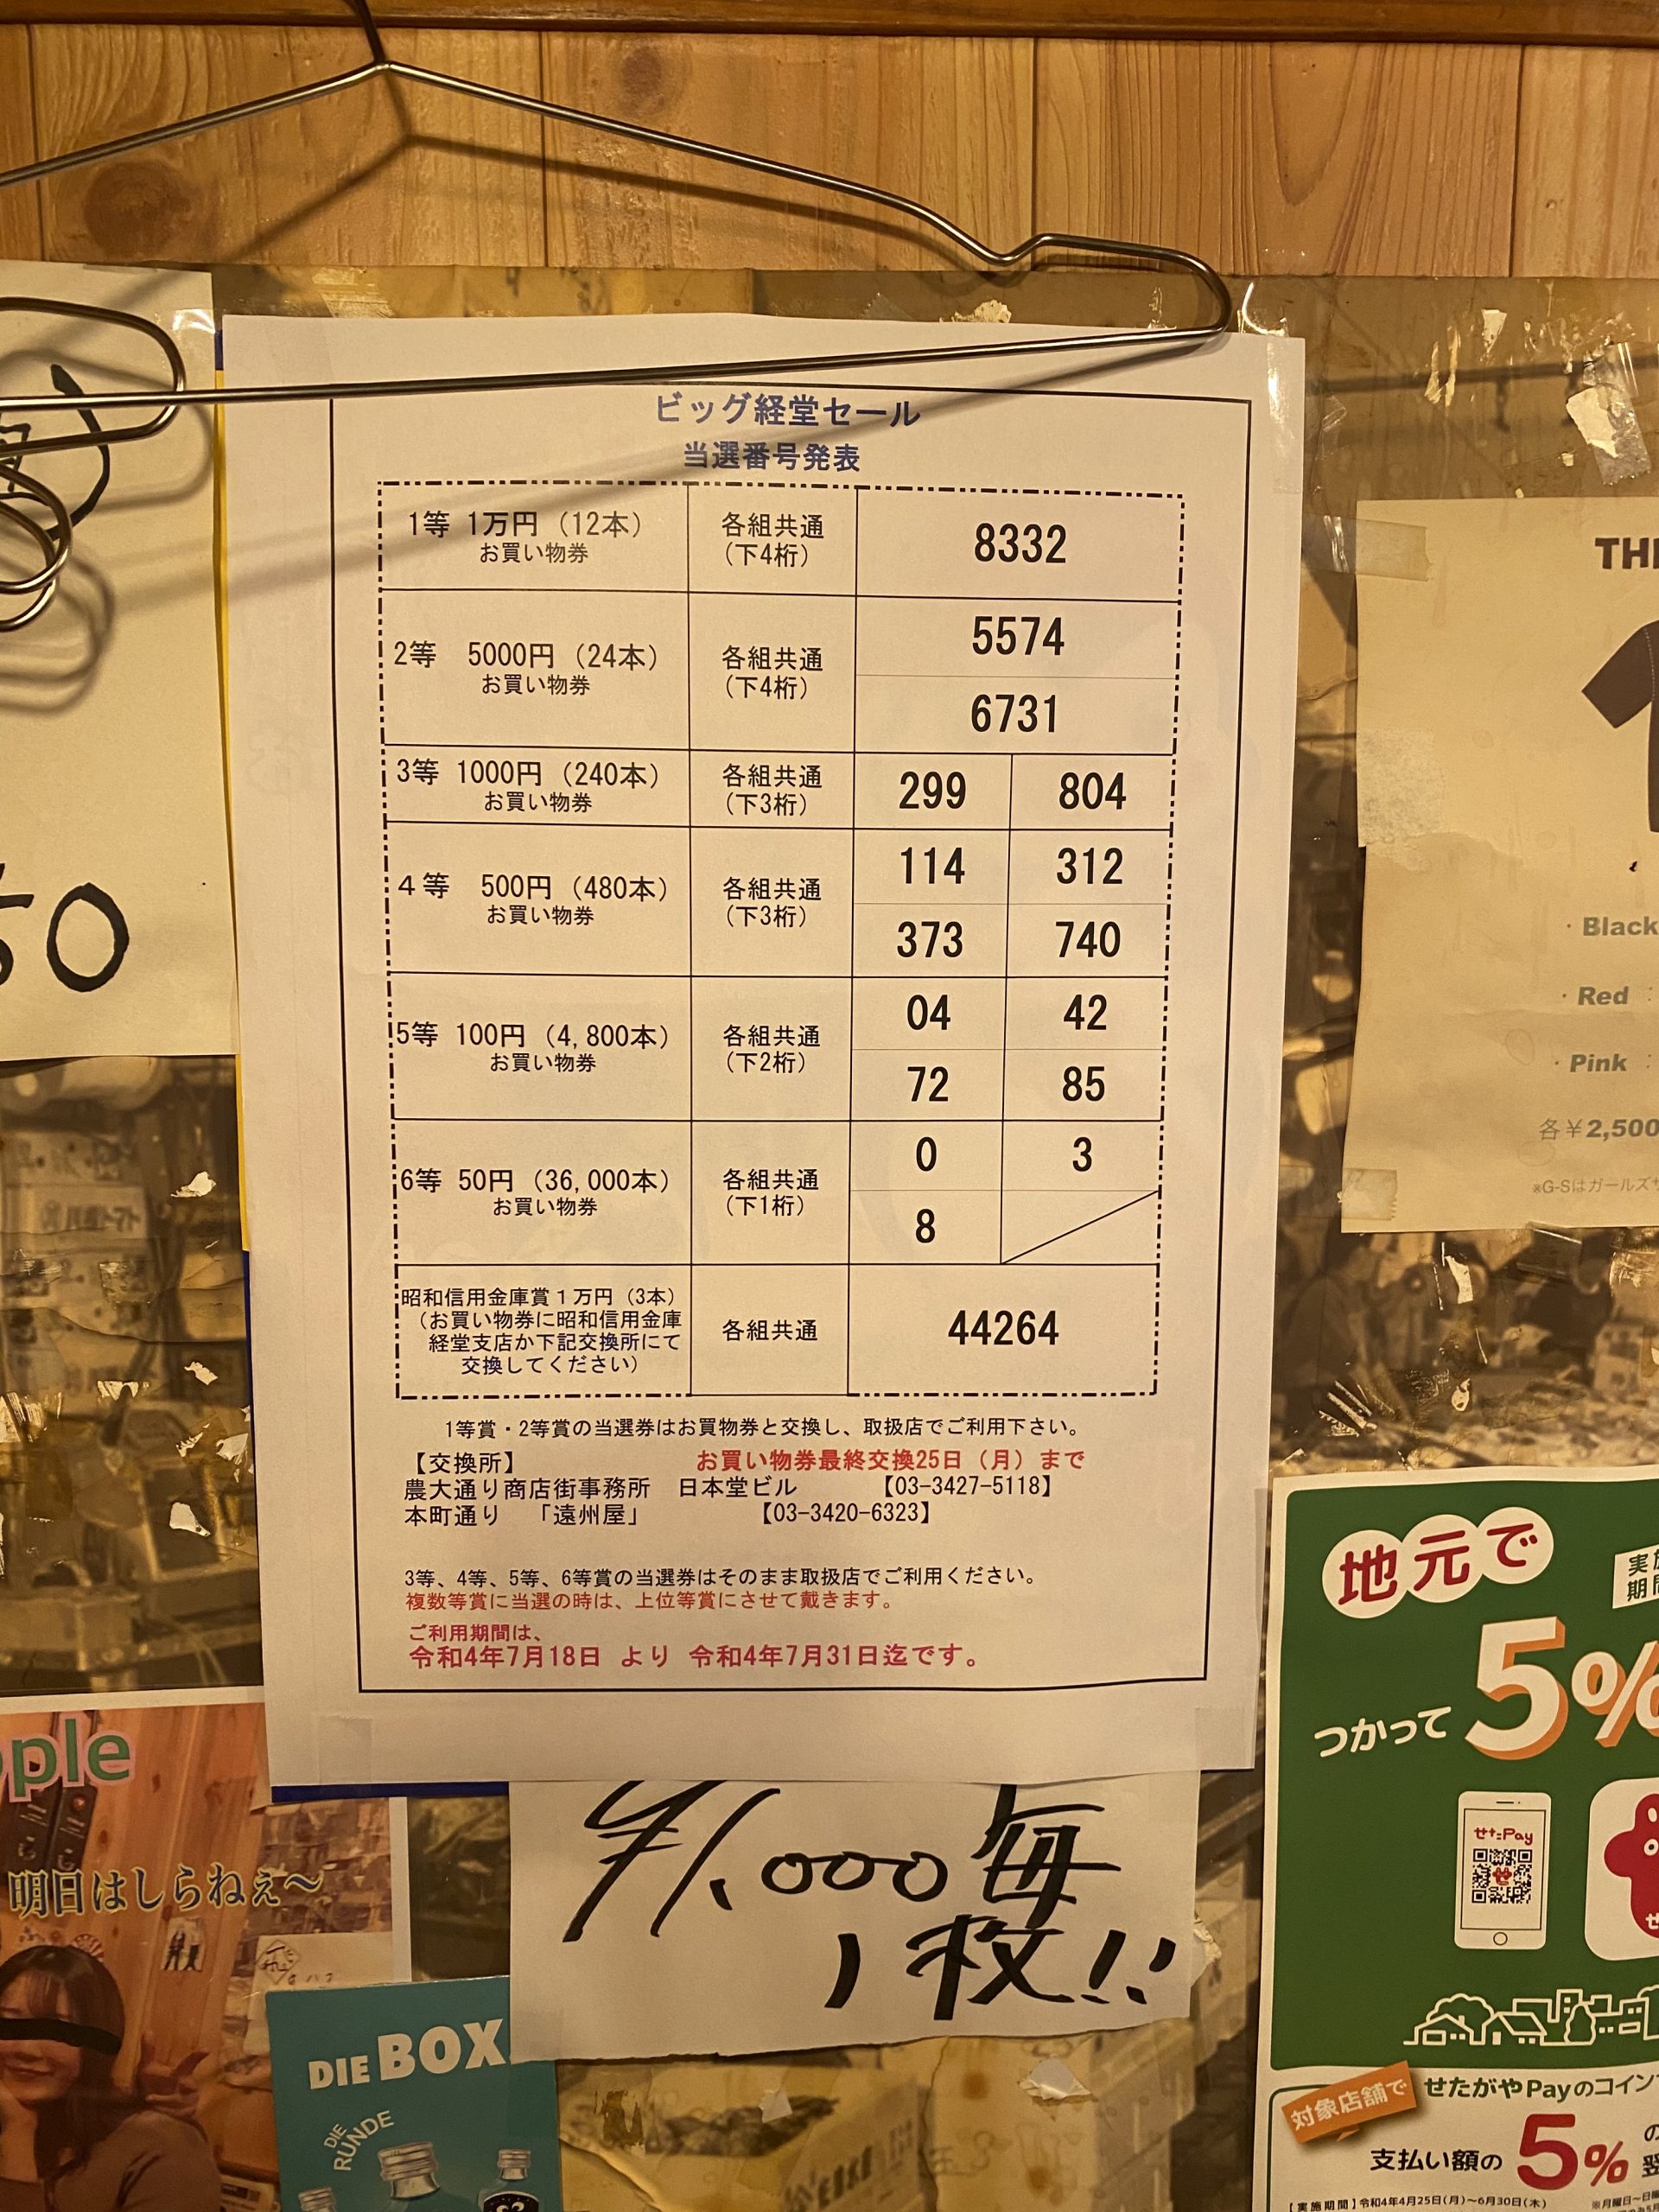 ビッグ経堂セール
当選番号発表
1等 1万円（12本）
お買い物券
各組共通
（下4桁）
8332
2等 5000円（24本）
お買い物券
各組共通
（下4桁）
5574
6731
3等 1000円（240本）
お買い物券
各組共通
（下3桁）
299 804
４等 500円（480本）
お買い物券
各組共通
（下3桁）
114 312
373 740
5等 100円（4,800本）
お買い物券
各組共通
（下2桁）
04 42
72 85
6等 50円（36,000本）
お買い物券
各組共通
（下1桁）
0 3
8
昭和信用金庫賞１万円（3本）
（お買い物券に昭和信用金庫
経堂支店か下記交換所にて
交換してください）
各組共通
44264
1等賞・2等賞の当選券はお買物券と交換し、取扱店でご利用下さい。
【交換所】 お買い物券最終交換25日（月）まで
農大通り商店街事務所 日本堂ビル 【03-3427-5118】
本町通り 「遠州屋」 【03-3420-6323】
3等、4等、5等、6等賞の当選券はそのまま取扱店でご利用ください。
複数等賞に当選の時は、上位等賞にさせて戴きます。
ご利用期間は、
令和4年7月18日 より 令和4年7月31日迄です。
¥1,000毎
1枚!!
・Black
・Red :
・Pink :
各￥2,500
地元で
つかって 5%
せたPay
対象店舗で
せたがやPayのコイン
支払い額の 5%
【実施期間】令和4年4月25日(月)～6月30日(木)
明日はしらねぇ～
DIE BOX
DIE
RUNDE